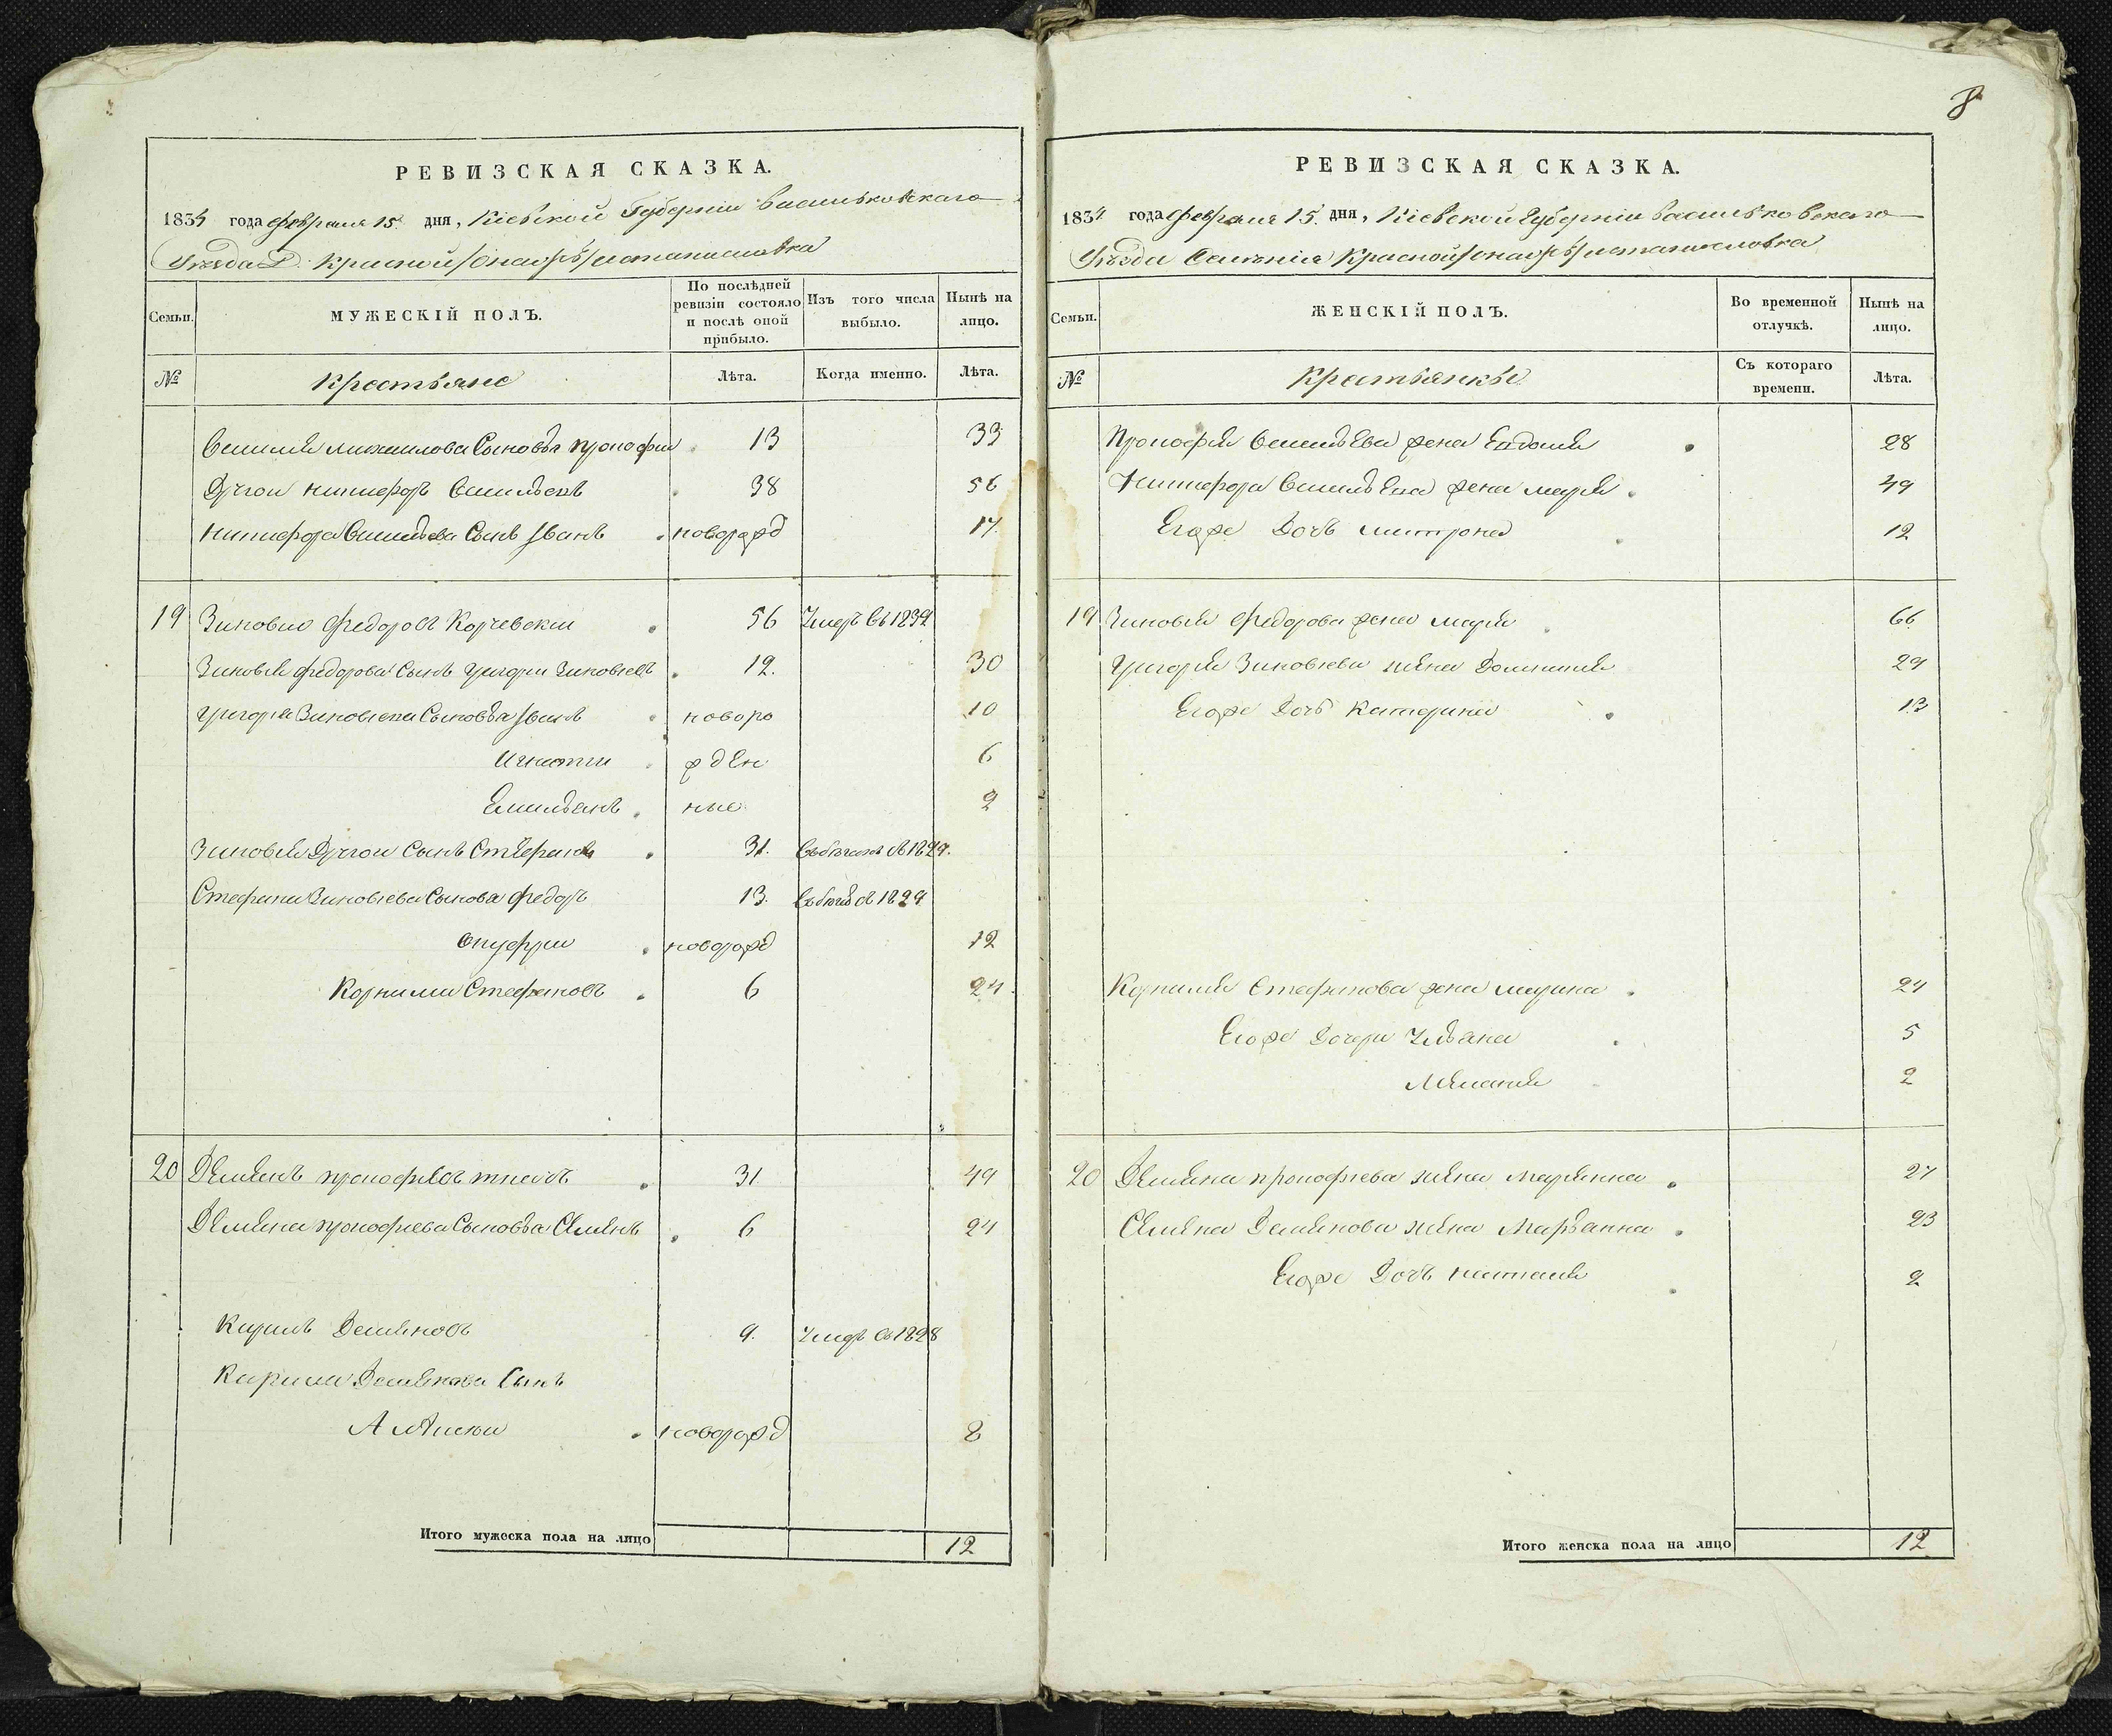 РЕВИЗСКАЯ СКАЗКА.
1834 года февраля 15. дня, Кіевской Губерніи Васильковскаго
Уѣзда Красной
Семьи.
МУЖЕСКІЙ ПОЛЪ.
По послѣдней ревизіи состояло и послѣ оной прибыло.
Изъ того числа выбыло.
Нынѣ на лицо.
№
Крестьяне
Лѣта.
Когда именно.
Лѣта.
Василия Михаилова Сыновья Прокофии 13 33
Другои Никифоръ Васильевъ 38 56
Никифора Васильева Сынъ Iванъ новорожд 17
19 Зиновио Федоровъ Корчевски 56 Умеръ въ 1832
Зиновия Федорова Сынъ Григори Зиновіевъ 12. 30
Григория Зиновіева Сыновья Iванъ новоро 10
Игнатии жден 6
Емильянъ ные 2
Зиновия Другои Сынъ Стефанъ 31. 1829.
Стефана Зиновіева Сынова Федоръ 13. 1829
Онуфри новорожд 12
Корнили Стефановъ 6 24.
20 Демянъ Прокофиевъ 31 49
Демяна Прокофиева Сыновья Семянъ 6 24
Кирилъ Демяновъ 9. Умеръ въ 1828
Кирила Демянова Сынъ
новорожд 8
Итого мужеска пола на лицо 12
8
РЕВИЗСКАЯ СКАЗКА.
1834 года февраля 15. дня, Кіевской Губерніи Васильковскаго
Уѣзда Селенія Красной
Семьи.
ЖЕНСКІЙ ПОЛЪ.
Во временной отлучкѣ.
Нынѣ на лицо.
№
Крестьянкы
Съ котораго времени.
Лѣта.
Прокофия Васильева жена Евдокия 28
Никифора Васильева жена Мария 49
Егоже Дочь Митрона 12
19 Зиновия Федорова жена Мария 66
Григория Зиновіева жена Домникия 29
Егоже Дочь Катерина 13
Корнилия Стефанова жена Марина 24
Егоже Дочери Ульяна 5
Мелания 2
20 Демяна Прокофиева жена Марянна 27
Семяна Демянова жена Марьянна 23
Егоже Дочь Наталия 2
Итого женска пола на лицо 12